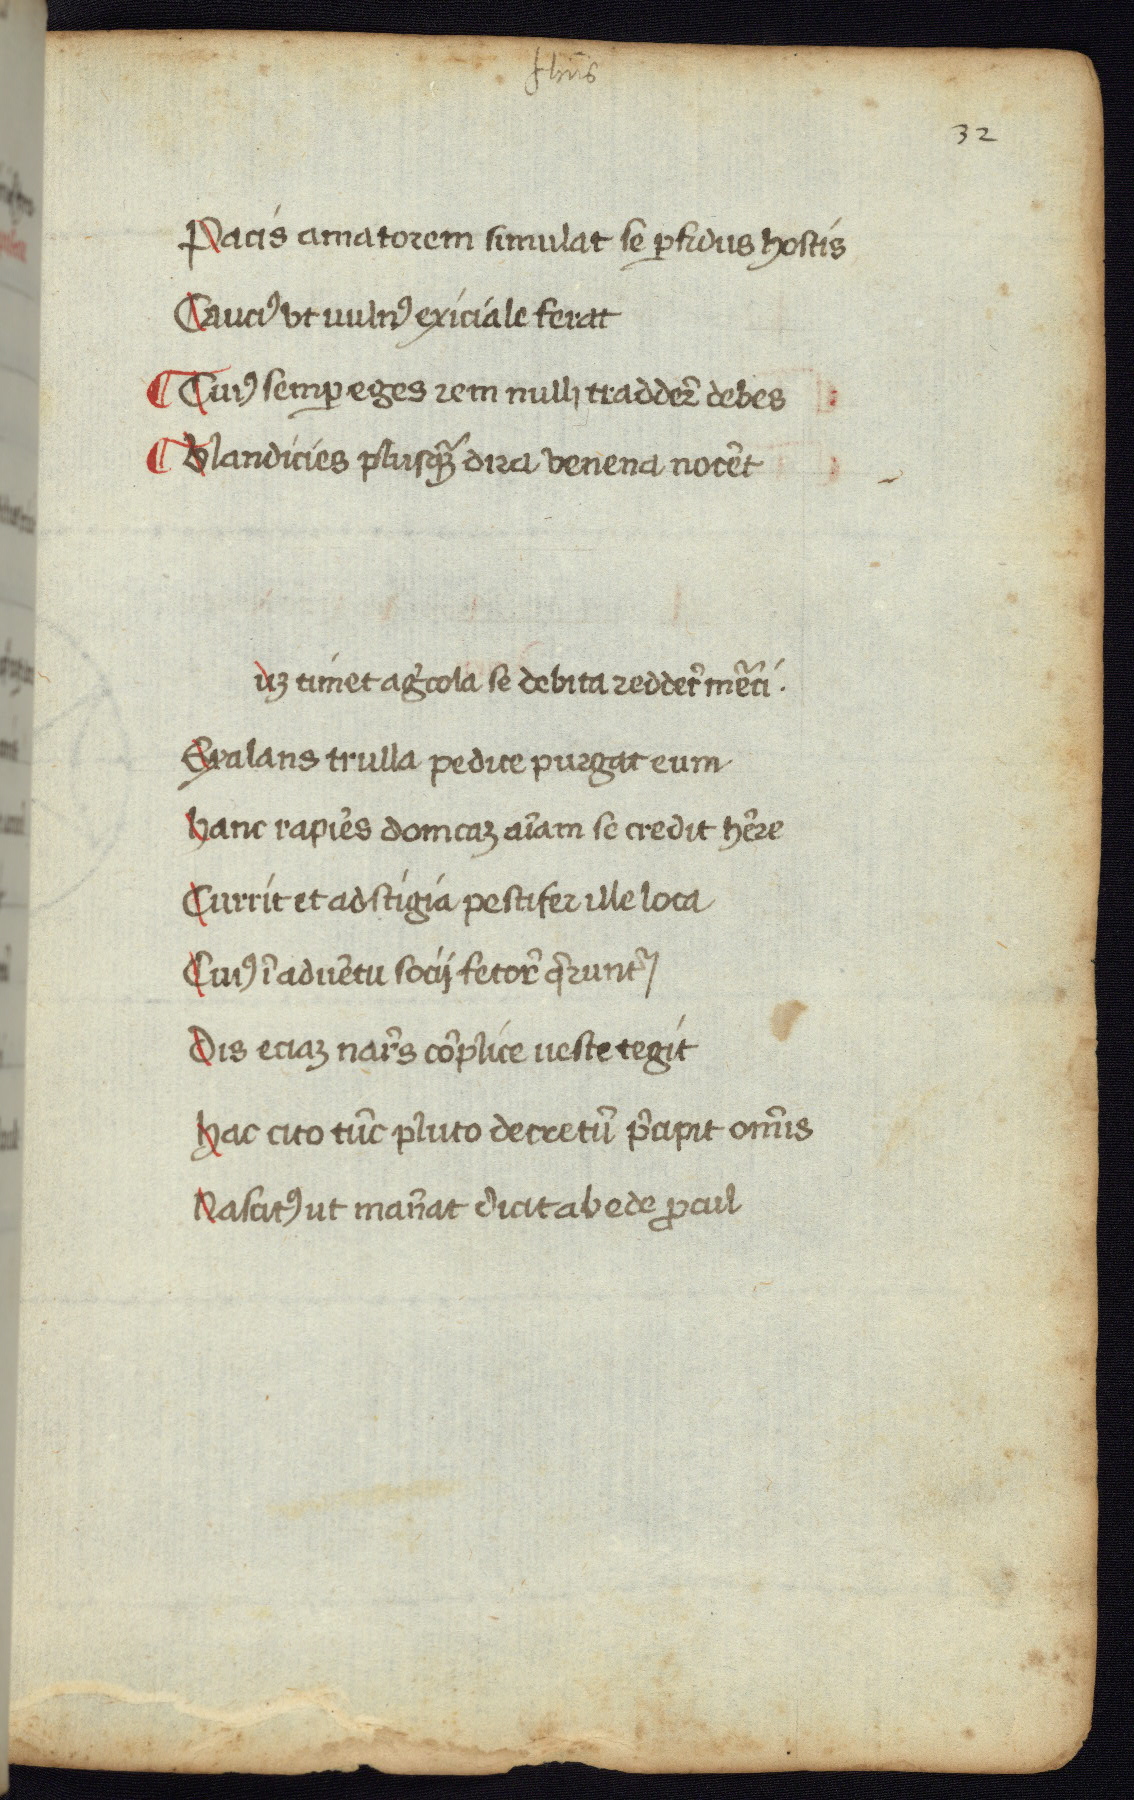 32
Pacis amatorem simulat se ꝑfidus hostis
Cauciꝰ vt uulnꝰ exiciale ferat
¶ Cuiꝰ semꝑ eges rem nulli tradder̃ debes
¶ Blandicies plusqꝫ̃ dira venena nocẽt
uꝫ timet ag̓cola se debita redder̃ mẽti.
Exalans trulla pedice purgat eum
hanc rapiẽs domcaꝫ aĩam se credit hẽre
Currit et ad stigia pestifer ille loca
Cuiꝰ ĩ aduẽtu socij fetor̃ q̃runt̃
Dis eciaꝫ nar̃s cõplice ueste tegit
hac cito tũc pluto decretũ p̃cipit om̃is
Nascitꝰ ut mañat dicit ab ede ꝓcul